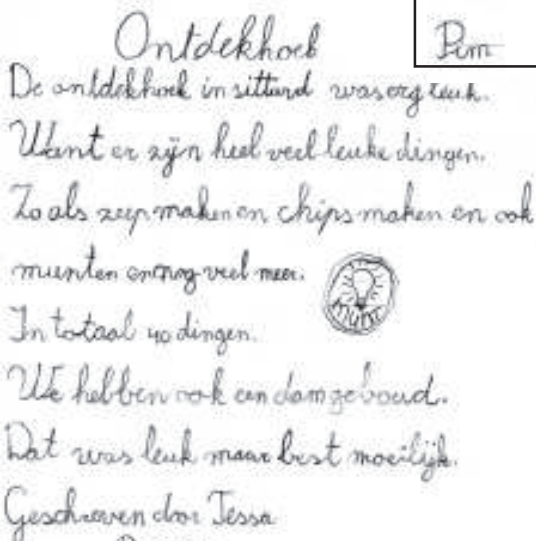 Ontdekhoek
Pim
De ontdekhoek in sittard was erg leuk.
Want er zijn heel veel leuke dingen.
Zo als zeep maken en chips maken en ook
munten en nog veel meer.
munt
In totaal 40 dingen.
We hebben ook een dam geboud.
Dat was leuk maar best moeilijk.
Geschreven door Tessa